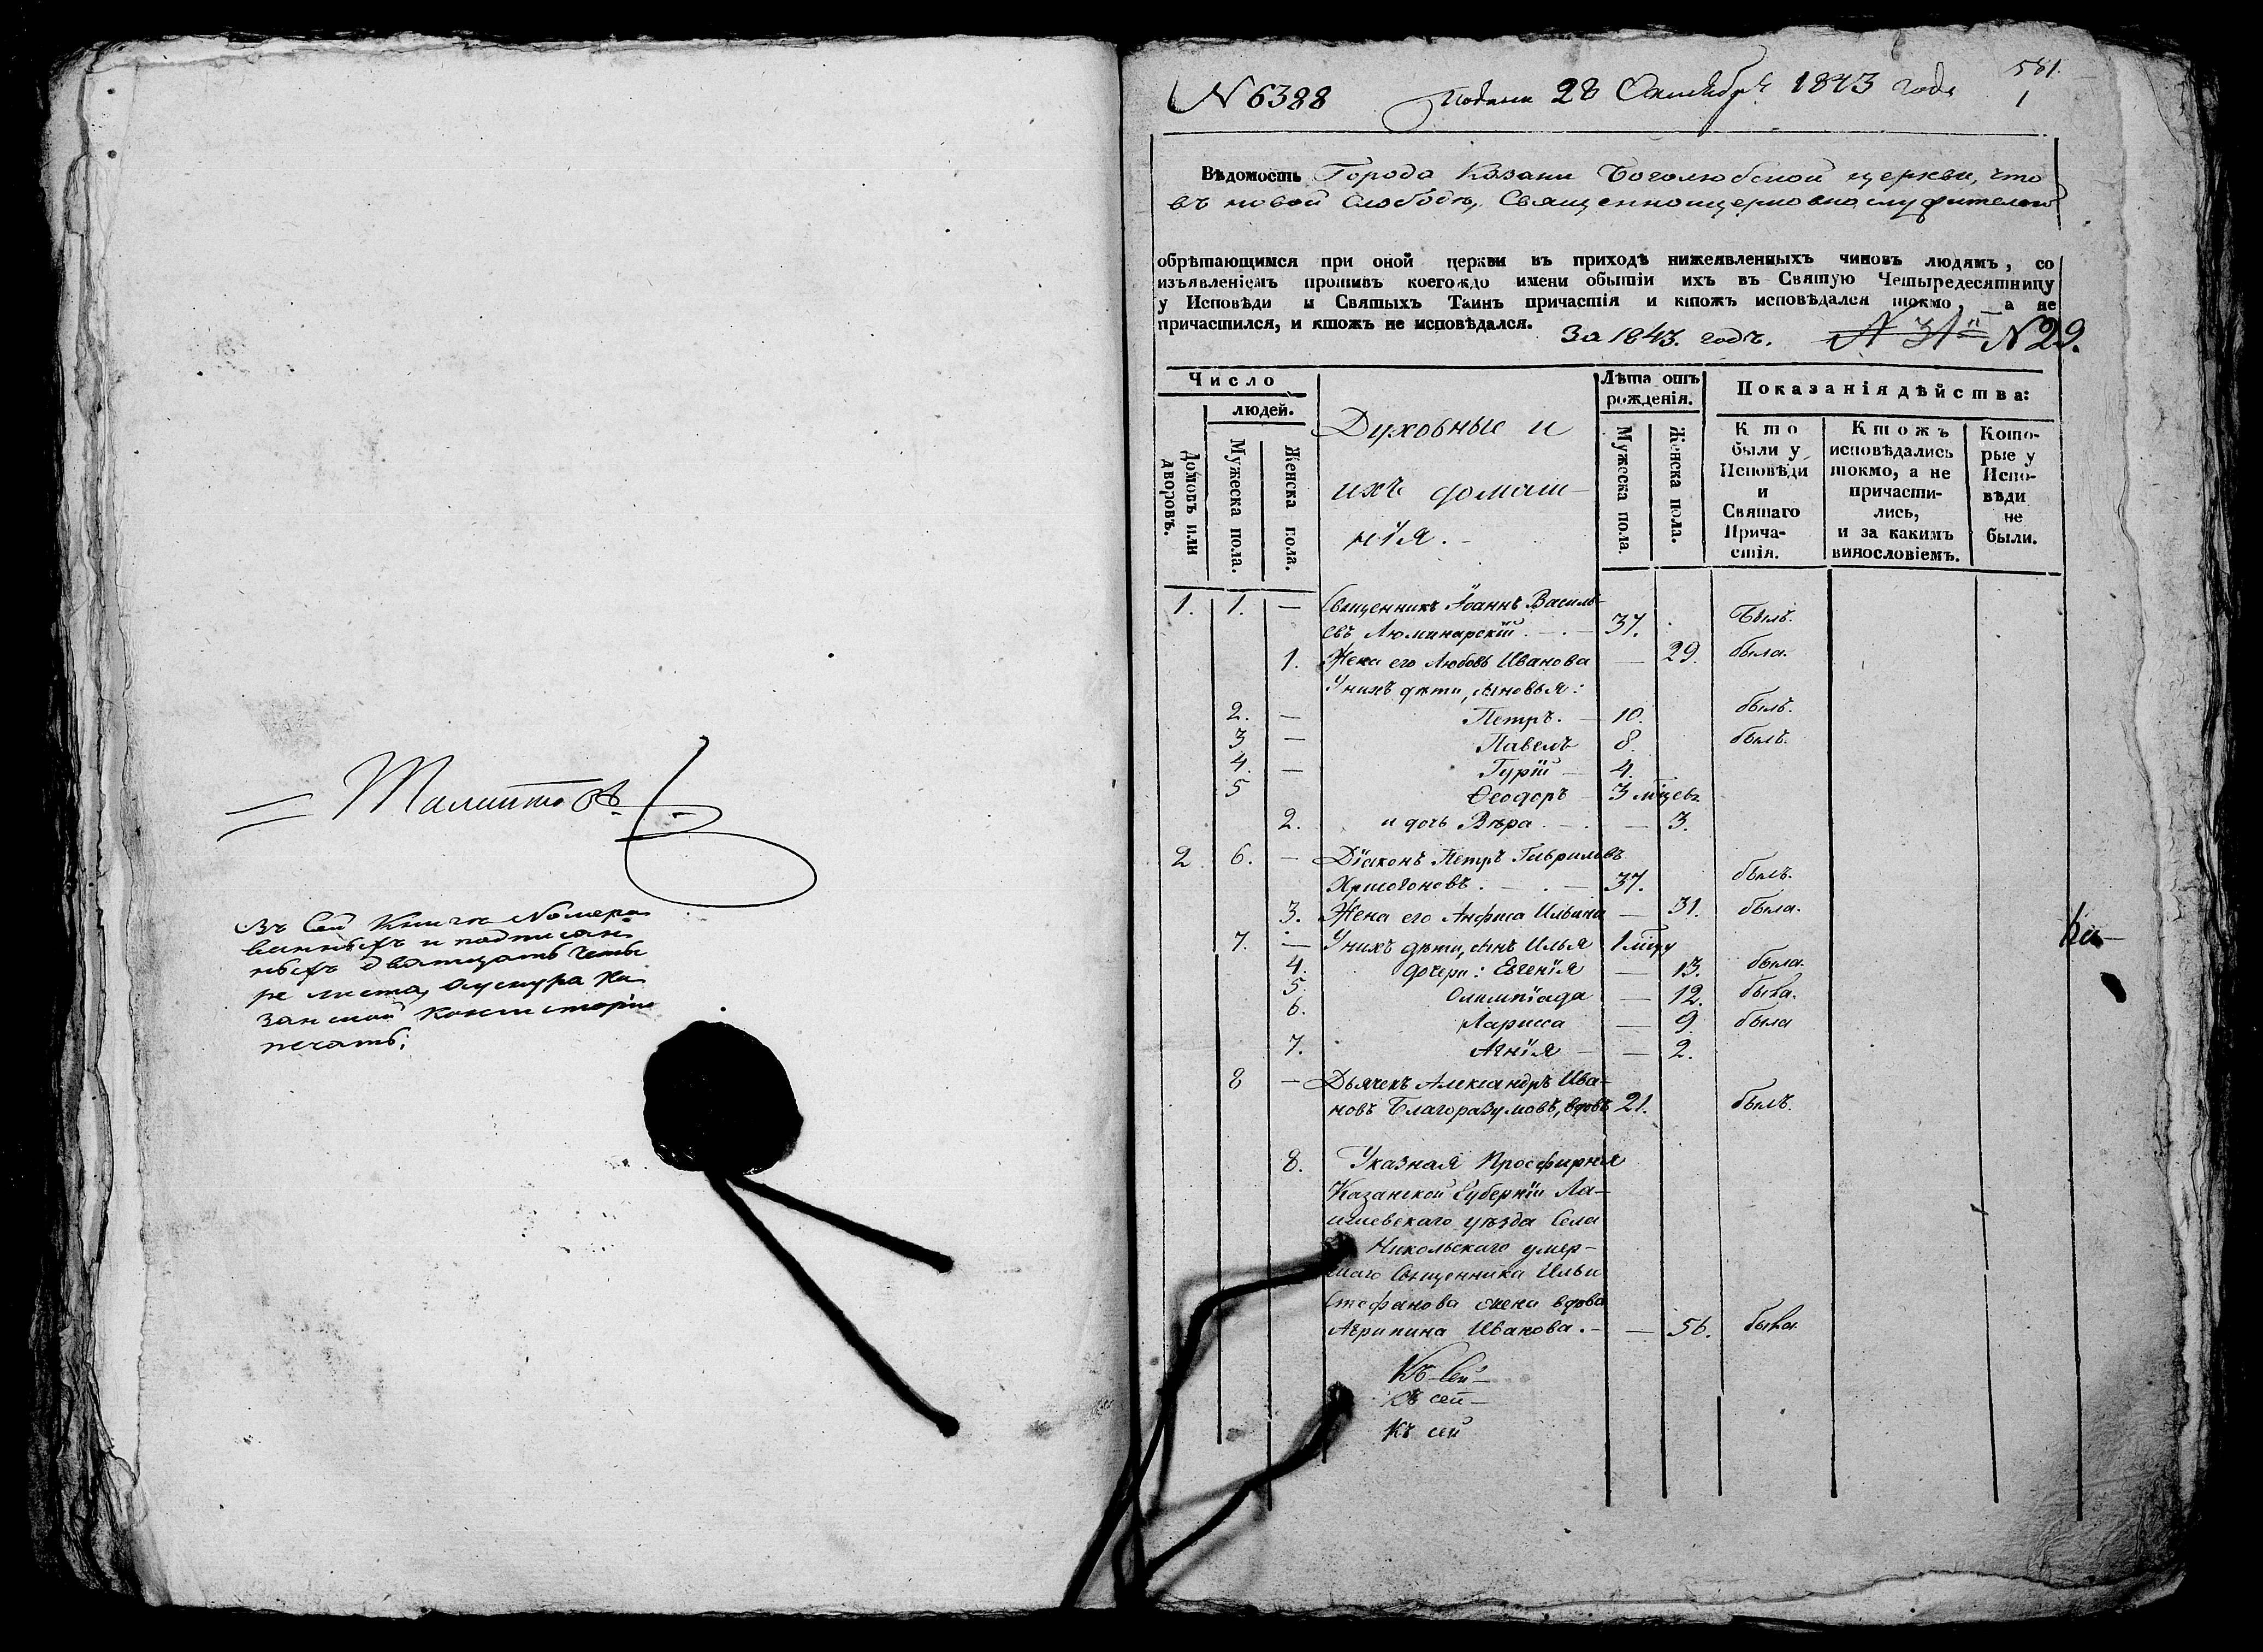 Талантовъ
Въ сей книгѣ Номеро
ванныхъ и подписан
ныхъ двадцать четы
ре листа, а у снура Ка
занской Консисторіи
печать;
581.
1
N 6388 Подана 28 Октября 1843 года
Вѣдомость Города Казани Боголюбской церкви, что
въ новой слободѣ, Священноцерковнослужителей
обрѣтающимся при оной церкви въ приходѣ нижеявленныхъ чиновъ людямъ, со
изъявленіемъ противъ коегождо имени обытіи ихъ въ Святую Четыредесятницу
у Исповѣди и Святыхъ Таинъ причастія и ктожъ исповѣдался токмо, а не
причастился, и ктожъ не исповѣдался. За 1843. годъ. N 29.
Число
людей.
Домовъ или дворовъ.
Мужеска пола.
Женска пола.
Духовные и
ихъ домаш-
нія.
Лѣта отъ
рожденія.
Мужеска пола.
Женска пола.
Показанія дѣйства:
Кто
были у
Исповѣди
и
Святаго
Прича-
стія.
Ктожъ
исповѣдались
токмо, а не
причасти-
лись,
и за какимъ
винословіемъ.
Кото-
рые у
Испо-
вѣди
не
были.
1. 1. — Священникъ Іоаннъ Василь-
евъ Люминарскій 37. Былъ.
1. Жена его Любовь Иванова — 29. была.
У нихъ дѣти, сыновья:
2. — Петръ. — 10. былъ.
3 — Павелъ 8. былъ.
4. — Гурій — 4.
5 Ѳеодоръ — 3 мѣсцевъ
2. и дочь Вѣра. — — 3.
2 6. — Діаконъ Петръ Гавриловъ
Хрисогоновъ. — 37. былъ.
3. Жена его Анфиса Ильина — 31. была.
7. — У нихъ дѣти, сынъ Илья 1 мѣсцу
Ка-
4. дочери: Евгенія — 13. была.
5. Олимпіада — 12. была.
6. Лариса — 9. была
7. Агнія — — 2.
8 — Дьячекъ Александръ Ива-
новъ Благоразумовъ, вдовъ 21. былъ.
8. Указная Просфирня
Казанской Губерніи Ла-
ишевскаго уѣзда Села
Никольскаго умер-
шаго Священника Ильи
Стефанова жена вдова
Агрипина Иванова. — — 56. была.
Къ сей —
Къ сей —
Къ сей